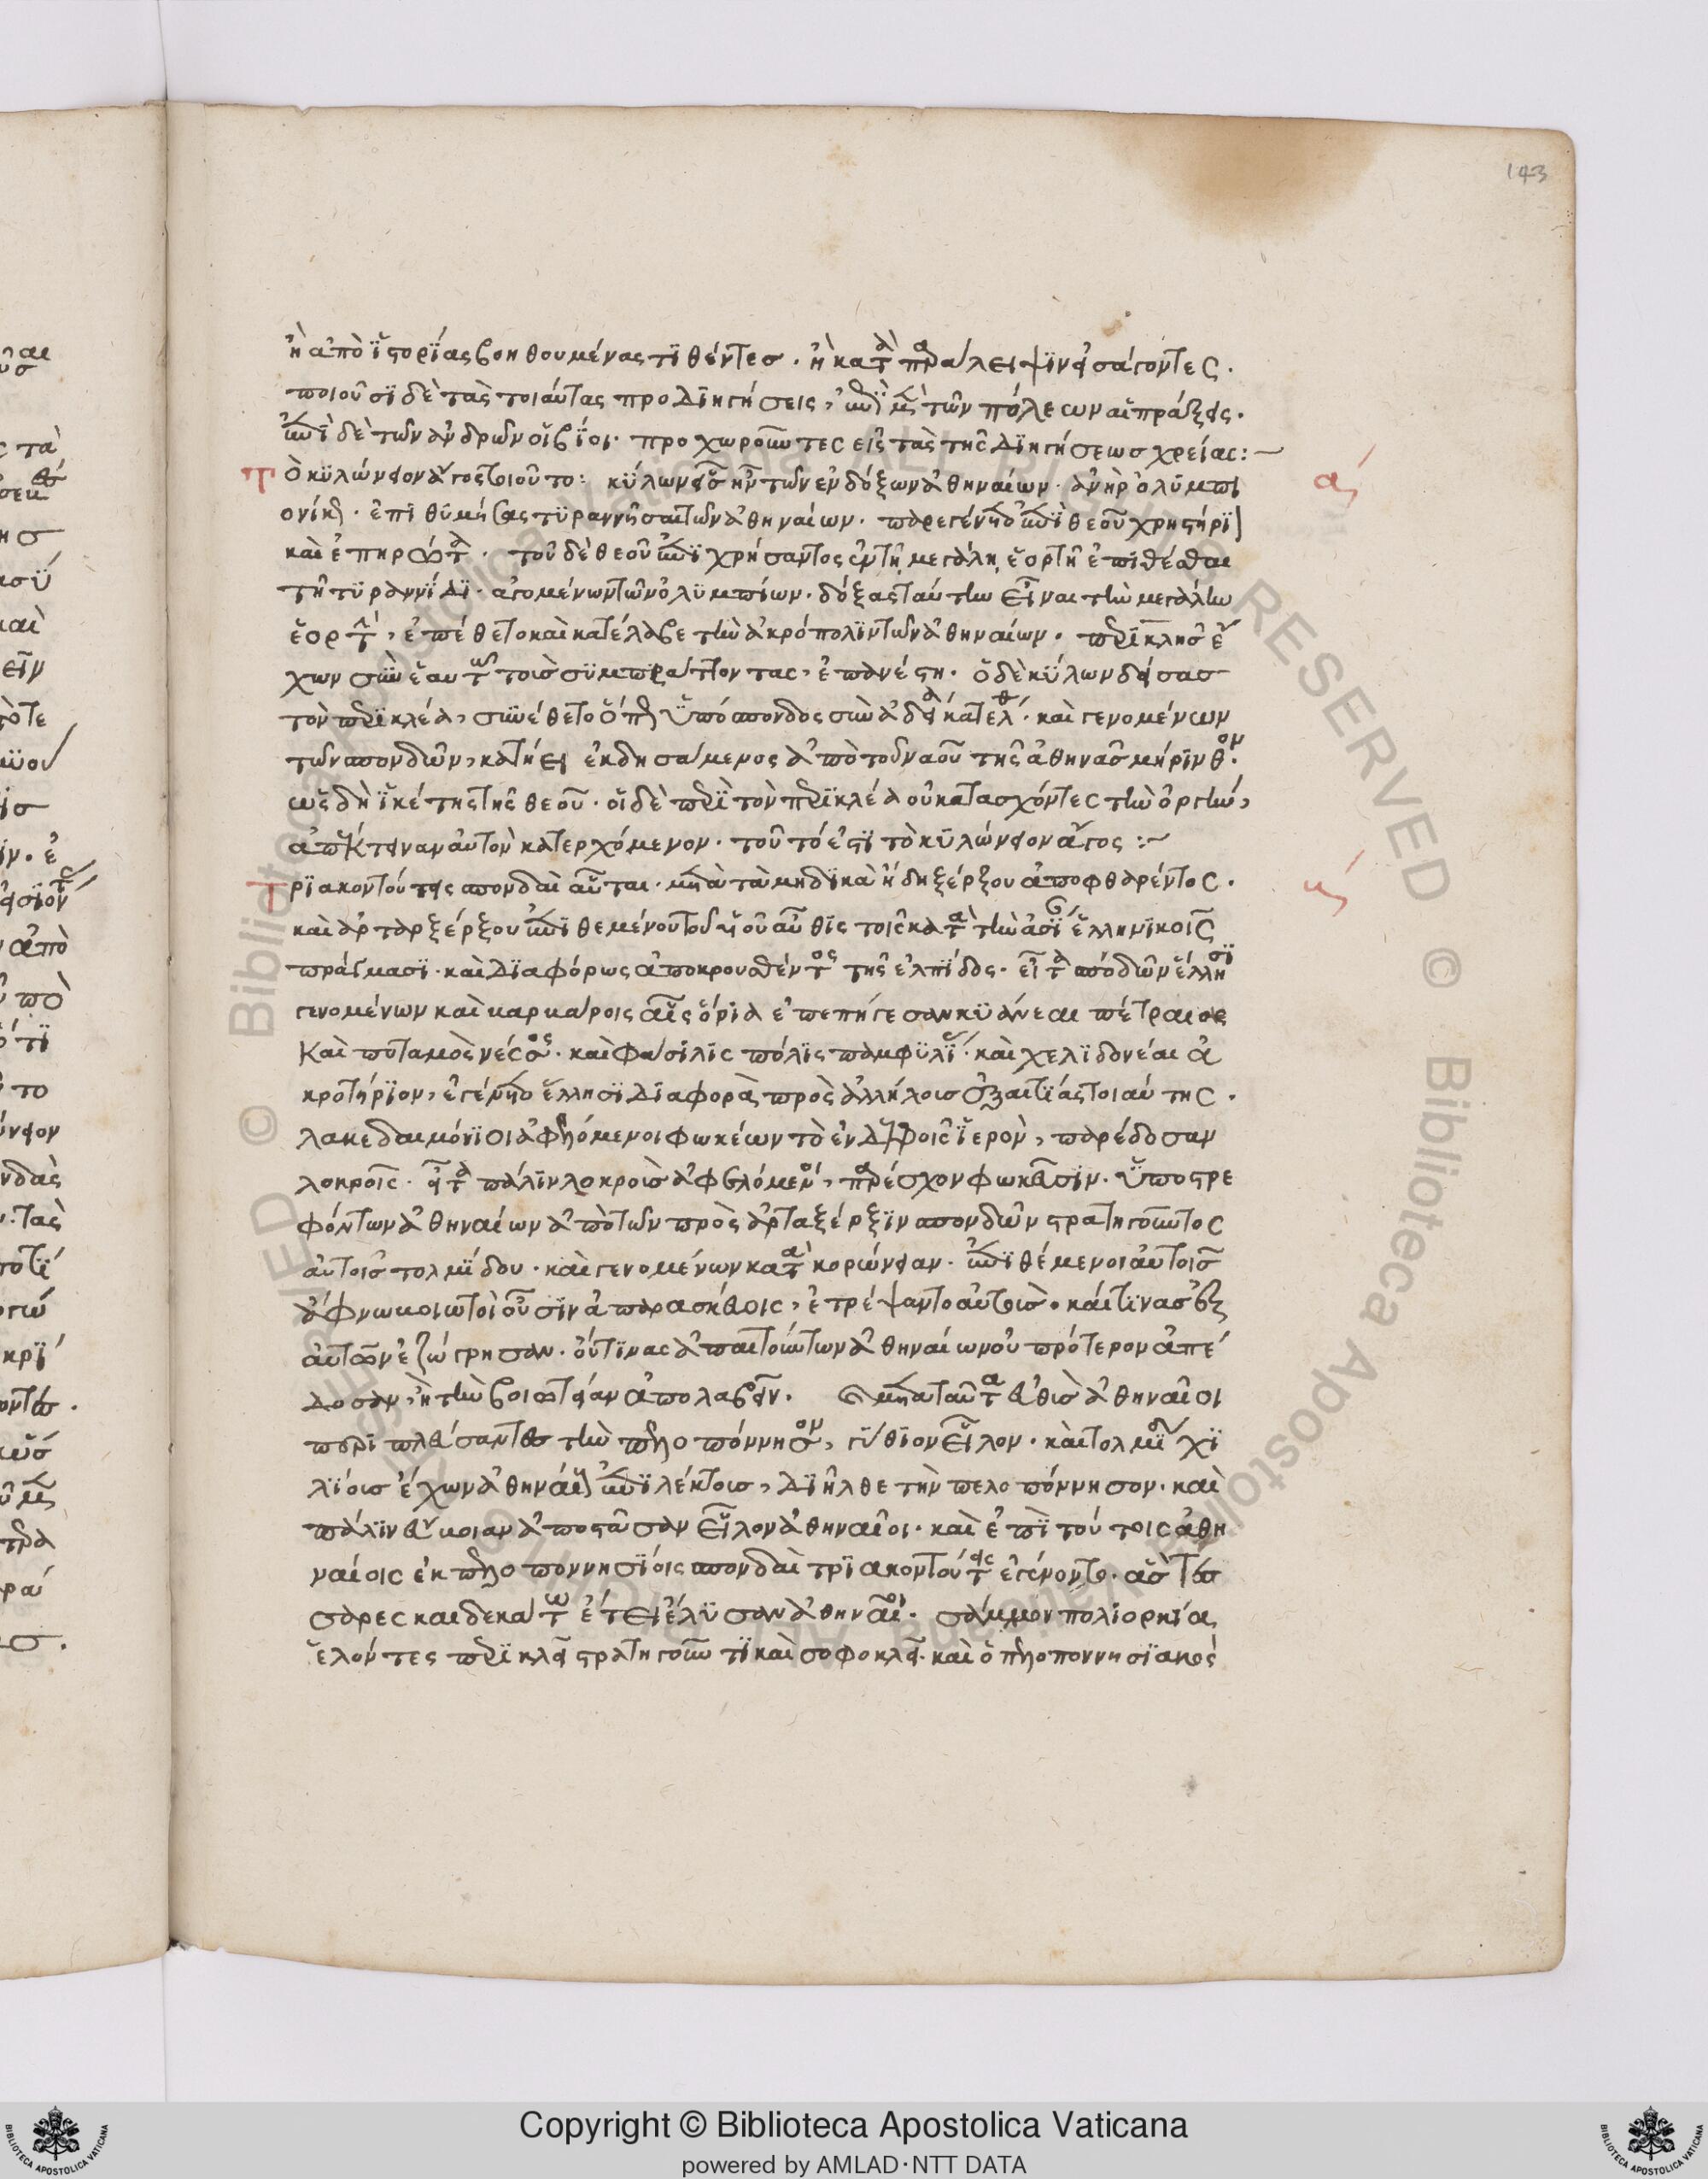 143
ἢ ἀπὸ ἱστορίας βοηθουμένας τιθέντες. ἢ κατὰ παράλειψιν εἰσάγοντες.
ποιοῦσι δὲ τὰς τοιαύτας προδιηγήσεις, τῶν πόλεων αἱ πράξεις.
ἐπὶ δὲ τῶν ἀνδρῶν οἱ βίοι. προχωροῦντες εἰς τὰς τῆς διηγήσεως χρείας:
Τὸ κυλώνειον ἄγος τοιοῦτο: κύλων εἷς ἦν τῶν ἐνδόξων ἀθηναίων. ἀνὴρ ὀλυμπι
ονίκης. ἐπιθυμήσας τυραννῆσαι τῶν ἀθηναίων. παρεγένετο ἐπὶ θεοῦ χρηστήρι
καὶ ἐπηρώτα. τοῦ δὲ θεοῦ ἐπιχρήσαντος ἐν τῇ μεγάλῃ ἑορτῇ ἐπιθέσθαι
τῇ τυραννίδι. ἀγομένων τῶν ὀλυμπίων. δόξας ταύτην εἶναι τὴν μεγάλην
ἑορτήν, ἐπέθετο καὶ κατέλαβε τὴν ἀκρόπολιν τῶν ἀθηναίων. περικλῆς ἔ
χων σὺν ἑαυτῷ τοὺς συμπράττοντας, ἐπανέστη. ὁ δὲ κύλων δείσας
τὸν περικλέα, συνέθετο ὅπως ὑπόσπονδος σὺν ἀδείᾳ κατέλθῃ. καὶ γενομένων
τῶν σπονδῶν, κατῄει ἐκδησάμενος ἀπὸ τοῦ ναοῦ τῆς ἀθηνᾶς μήρινθον.
ὡς δὴ ἱκέτης τῆς θεοῦ. οἱ δὲ περὶ τὸν περικλέα οὐ κατασχόντες τὴν ὀργήν,
ἀπέκτειναν αὐτὸν κατερχόμενον. τοῦτό ἐστι τὸ κυλώνειον ἄγος:
α
Τριακοντούτεις σπονδαὶ αὗται. μετὰ τὰ μηδικὰ ἤδη ξέρξου ἀποφθαρέντος.
καὶ ἀρταρξέρξου ἐπιθεμένου τοῦ υἱοῦ αὖθις τοῖς κατὰ τὴν ἀσίαν ἑλληνικοῖς
πράγμασι. καὶ διαφόρως ἀποκρουσθέντος τῆς ἐλπίδος. εἶτα σπονδῶν ἕλλησι
γενομένων καὶ βαρβάροις αἷς ὅρια ἐπεπήγεσαν κυάνεαι πέτραι
καὶ ποταμὸς νέσος. καὶ φασιλὶς πόλις παμφυλίας. καὶ χελιδονέαι ἀ
κρωτήριον, ἐγένετο ἕλλησι διαφορὰ πρὸς ἀλλήλους ἐξ αἰτίας τοιαύτης.
λακεδαιμόνιοι ἀφελόμενοι φωκέων τὸ ἐν δελφοῖς ἱερὸν, παρέδοσαν
λοκροῖς. εἶτα πάλιν λοκροὺς ἀφελόμενοι, παρέσχον φωκεῦσιν. ὑποστρε
φόντων ἀθηναίων ἀπὸ τῶν πρὸς ἀρταξέρξην σπονδῶν στρατηγοῦντος
αὐτοῖς τολμίδου. καὶ γενομένων κατὰ κορώνειαν. ἐπιθέμενοι αὐτοῖς
ἄφνω βοιωτοὶ οὖσιν ἀπαρασκεύοις, ἐτρέψαντο αὐτοὺς. καί τινας ἐξ
αὐτῶν ἐζώγρησαν. οὕστινας ἀπαιτούντων ἀθηναίων οὐ πρότερον ἀπέ
δοσαν, ἢ τὴν βοιωτείαν ἀπολαβεῖν. μετὰ ταῦτα εὐθὺς ἀθηναῖοι
περιπλεύσαντες τὴν πελοπόννησον, γύθιον εἷλον. καὶ τολμίδης χι
λίους ἔχων ἀθηναίους ἐπιλέκτους, διῆλθε τὴν πελοπόννησον. καὶ
πάλιν εὔβοιαν ἀποστᾶσαν εἷλον ἀθηναῖοι. καὶ ἐπὶ τούτοις ἀθη
ναίοις ἐκ πελοποννησίοις σπονδαὶ τριακοντούτεις ἐγένοντο. ἃς τεσ
σαρεσκαιδεκάτῳ ἔτει ἔλυσαν ἀθηναῖοι. σάμμον πολιορκίᾳ
ἑλόντες περικλεῖ στρατηγοῦντι καὶ σοφοκλεῖ. καὶ ὁ πελοποννησιακὸς